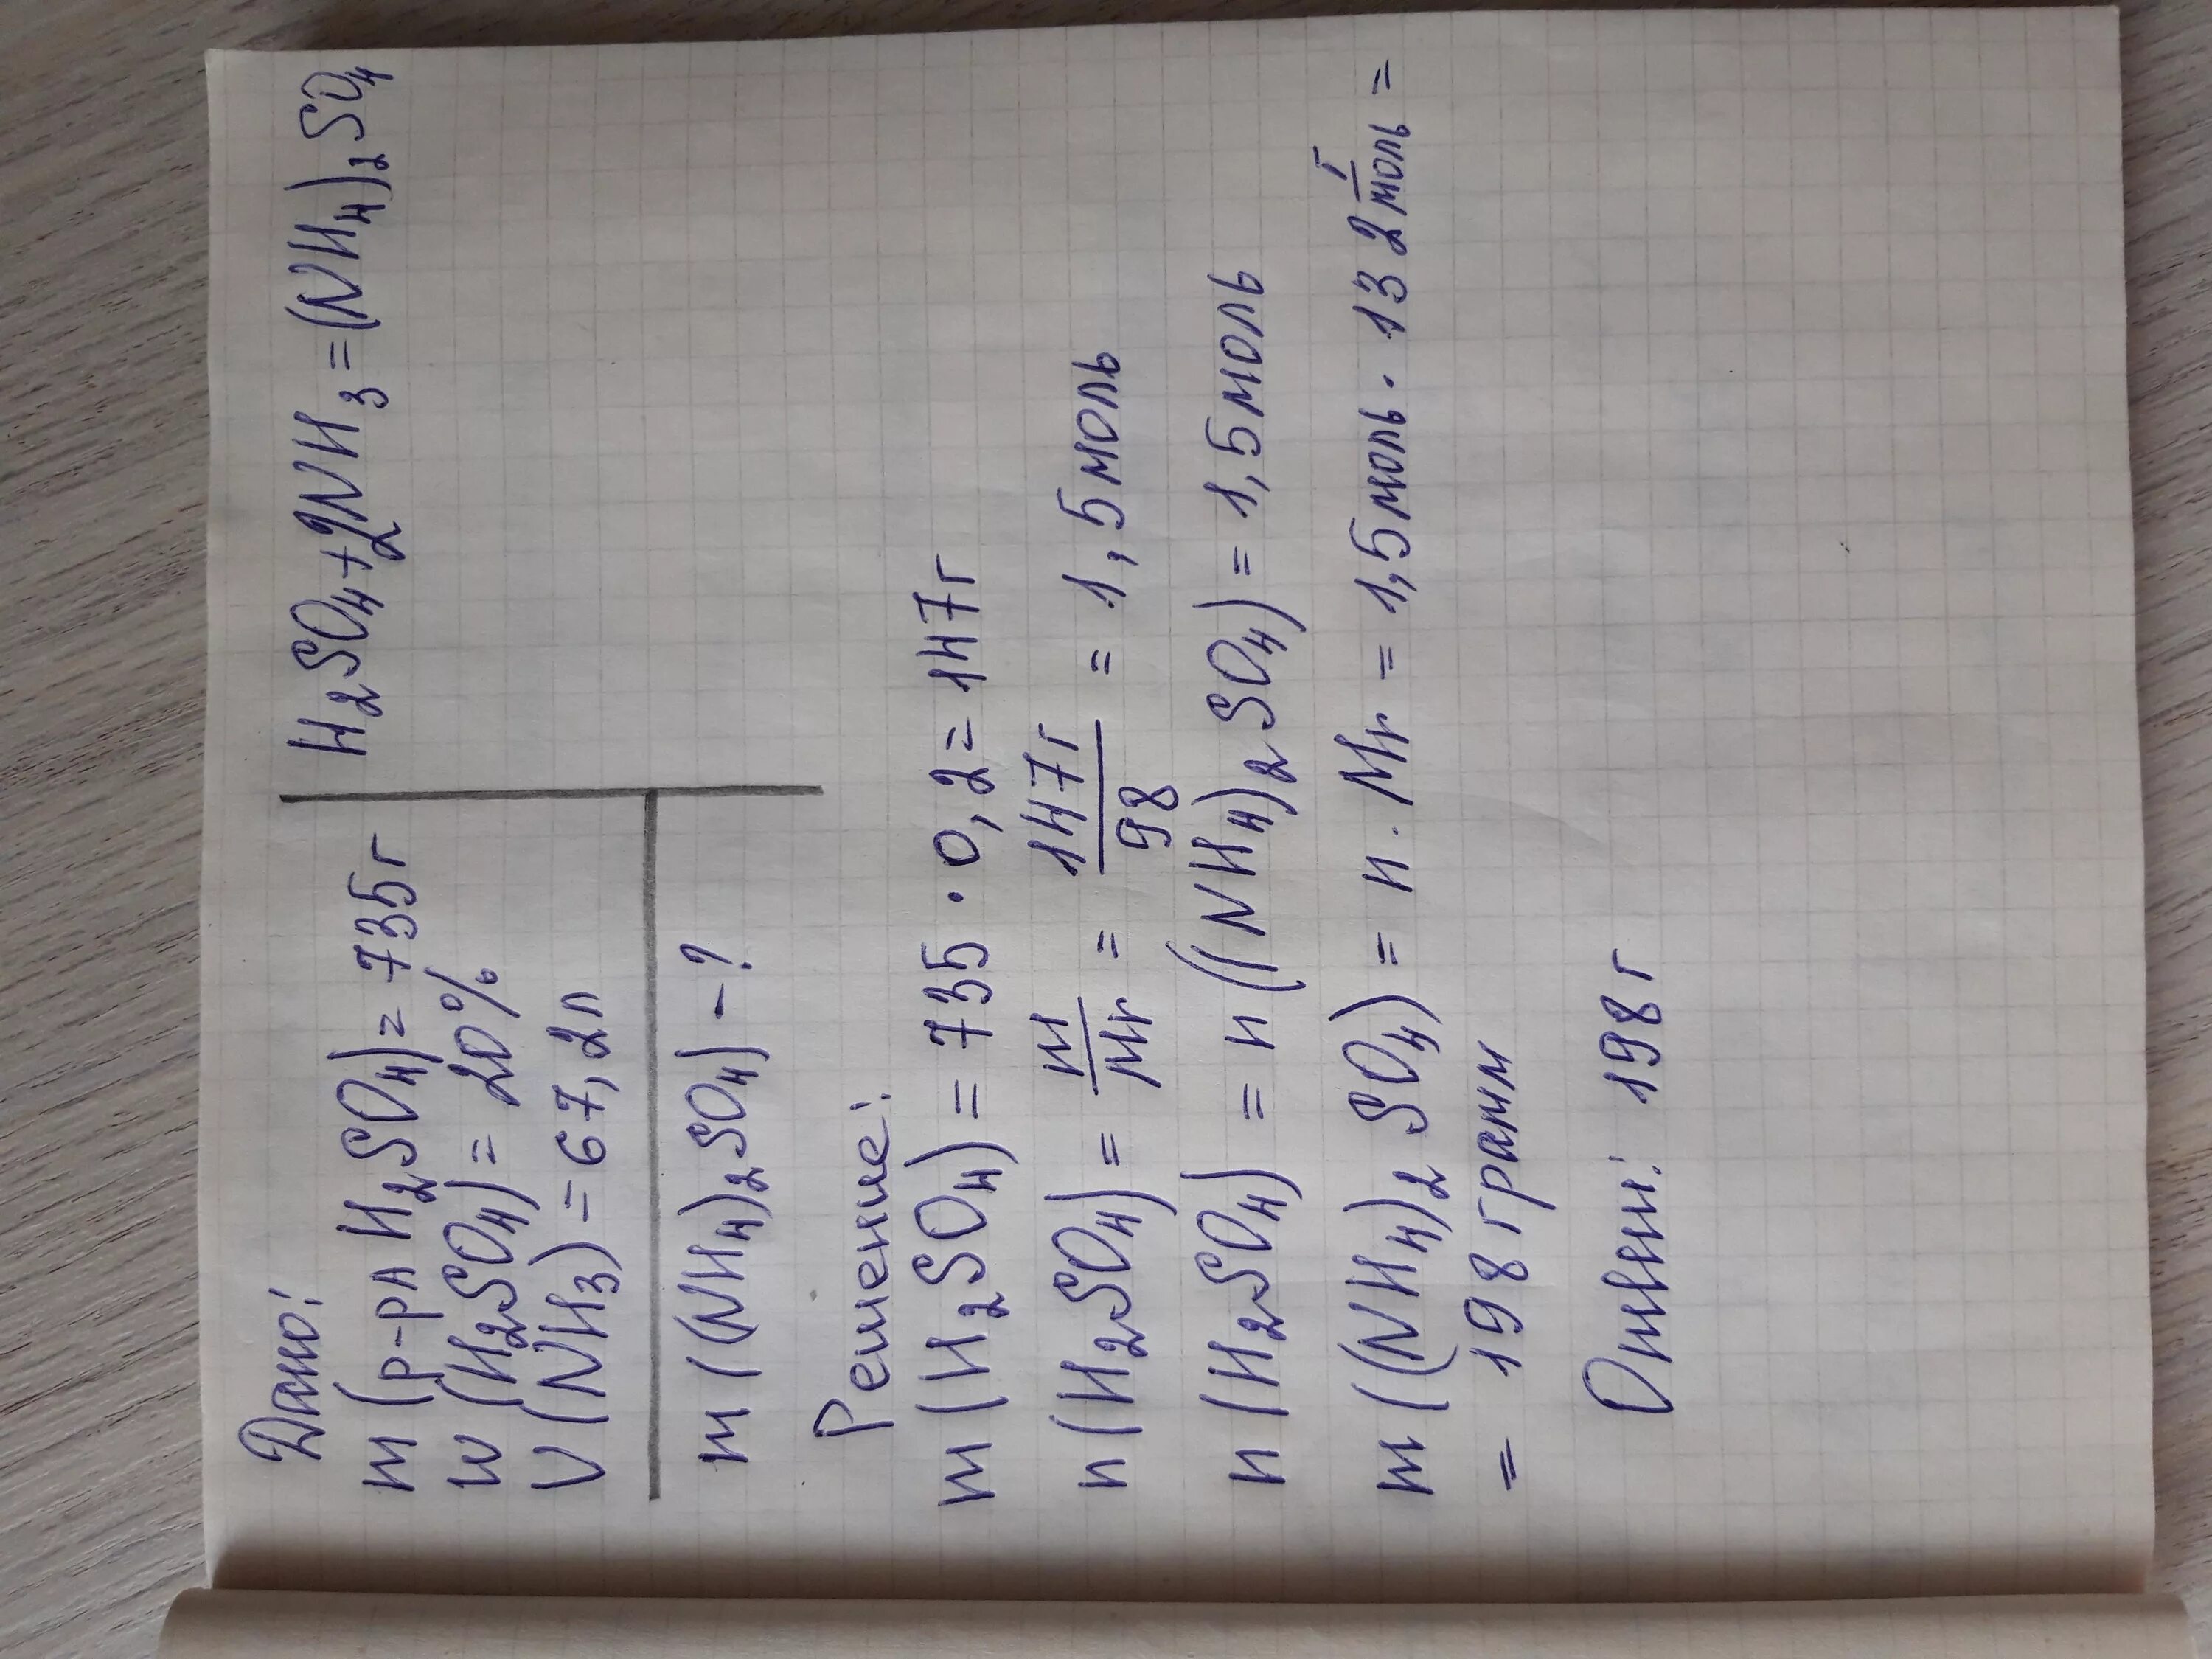 Дано:
m (р-ра H₂SO₄) = 735г
w (H₂SO₄) = 20%
V (NH₃) = 67,2л
m ((NH₄)₂SO₄) - ?
H₂SO₄ + 2NH₃ = (NH₄)₂SO₄
Решение:
m (H₂SO₄) = 735 · 0,2 = 147г
n (H₂SO₄) = m/Mr = 147г/98 = 1,5моль
n (H₂SO₄) = n ((NH₄)₂SO₄) = 1,5моль
m ((NH₄)₂SO₄) = n · Mr = 1,5моль · 132 г/моль =
= 198 грамм
Ответ: 198 г